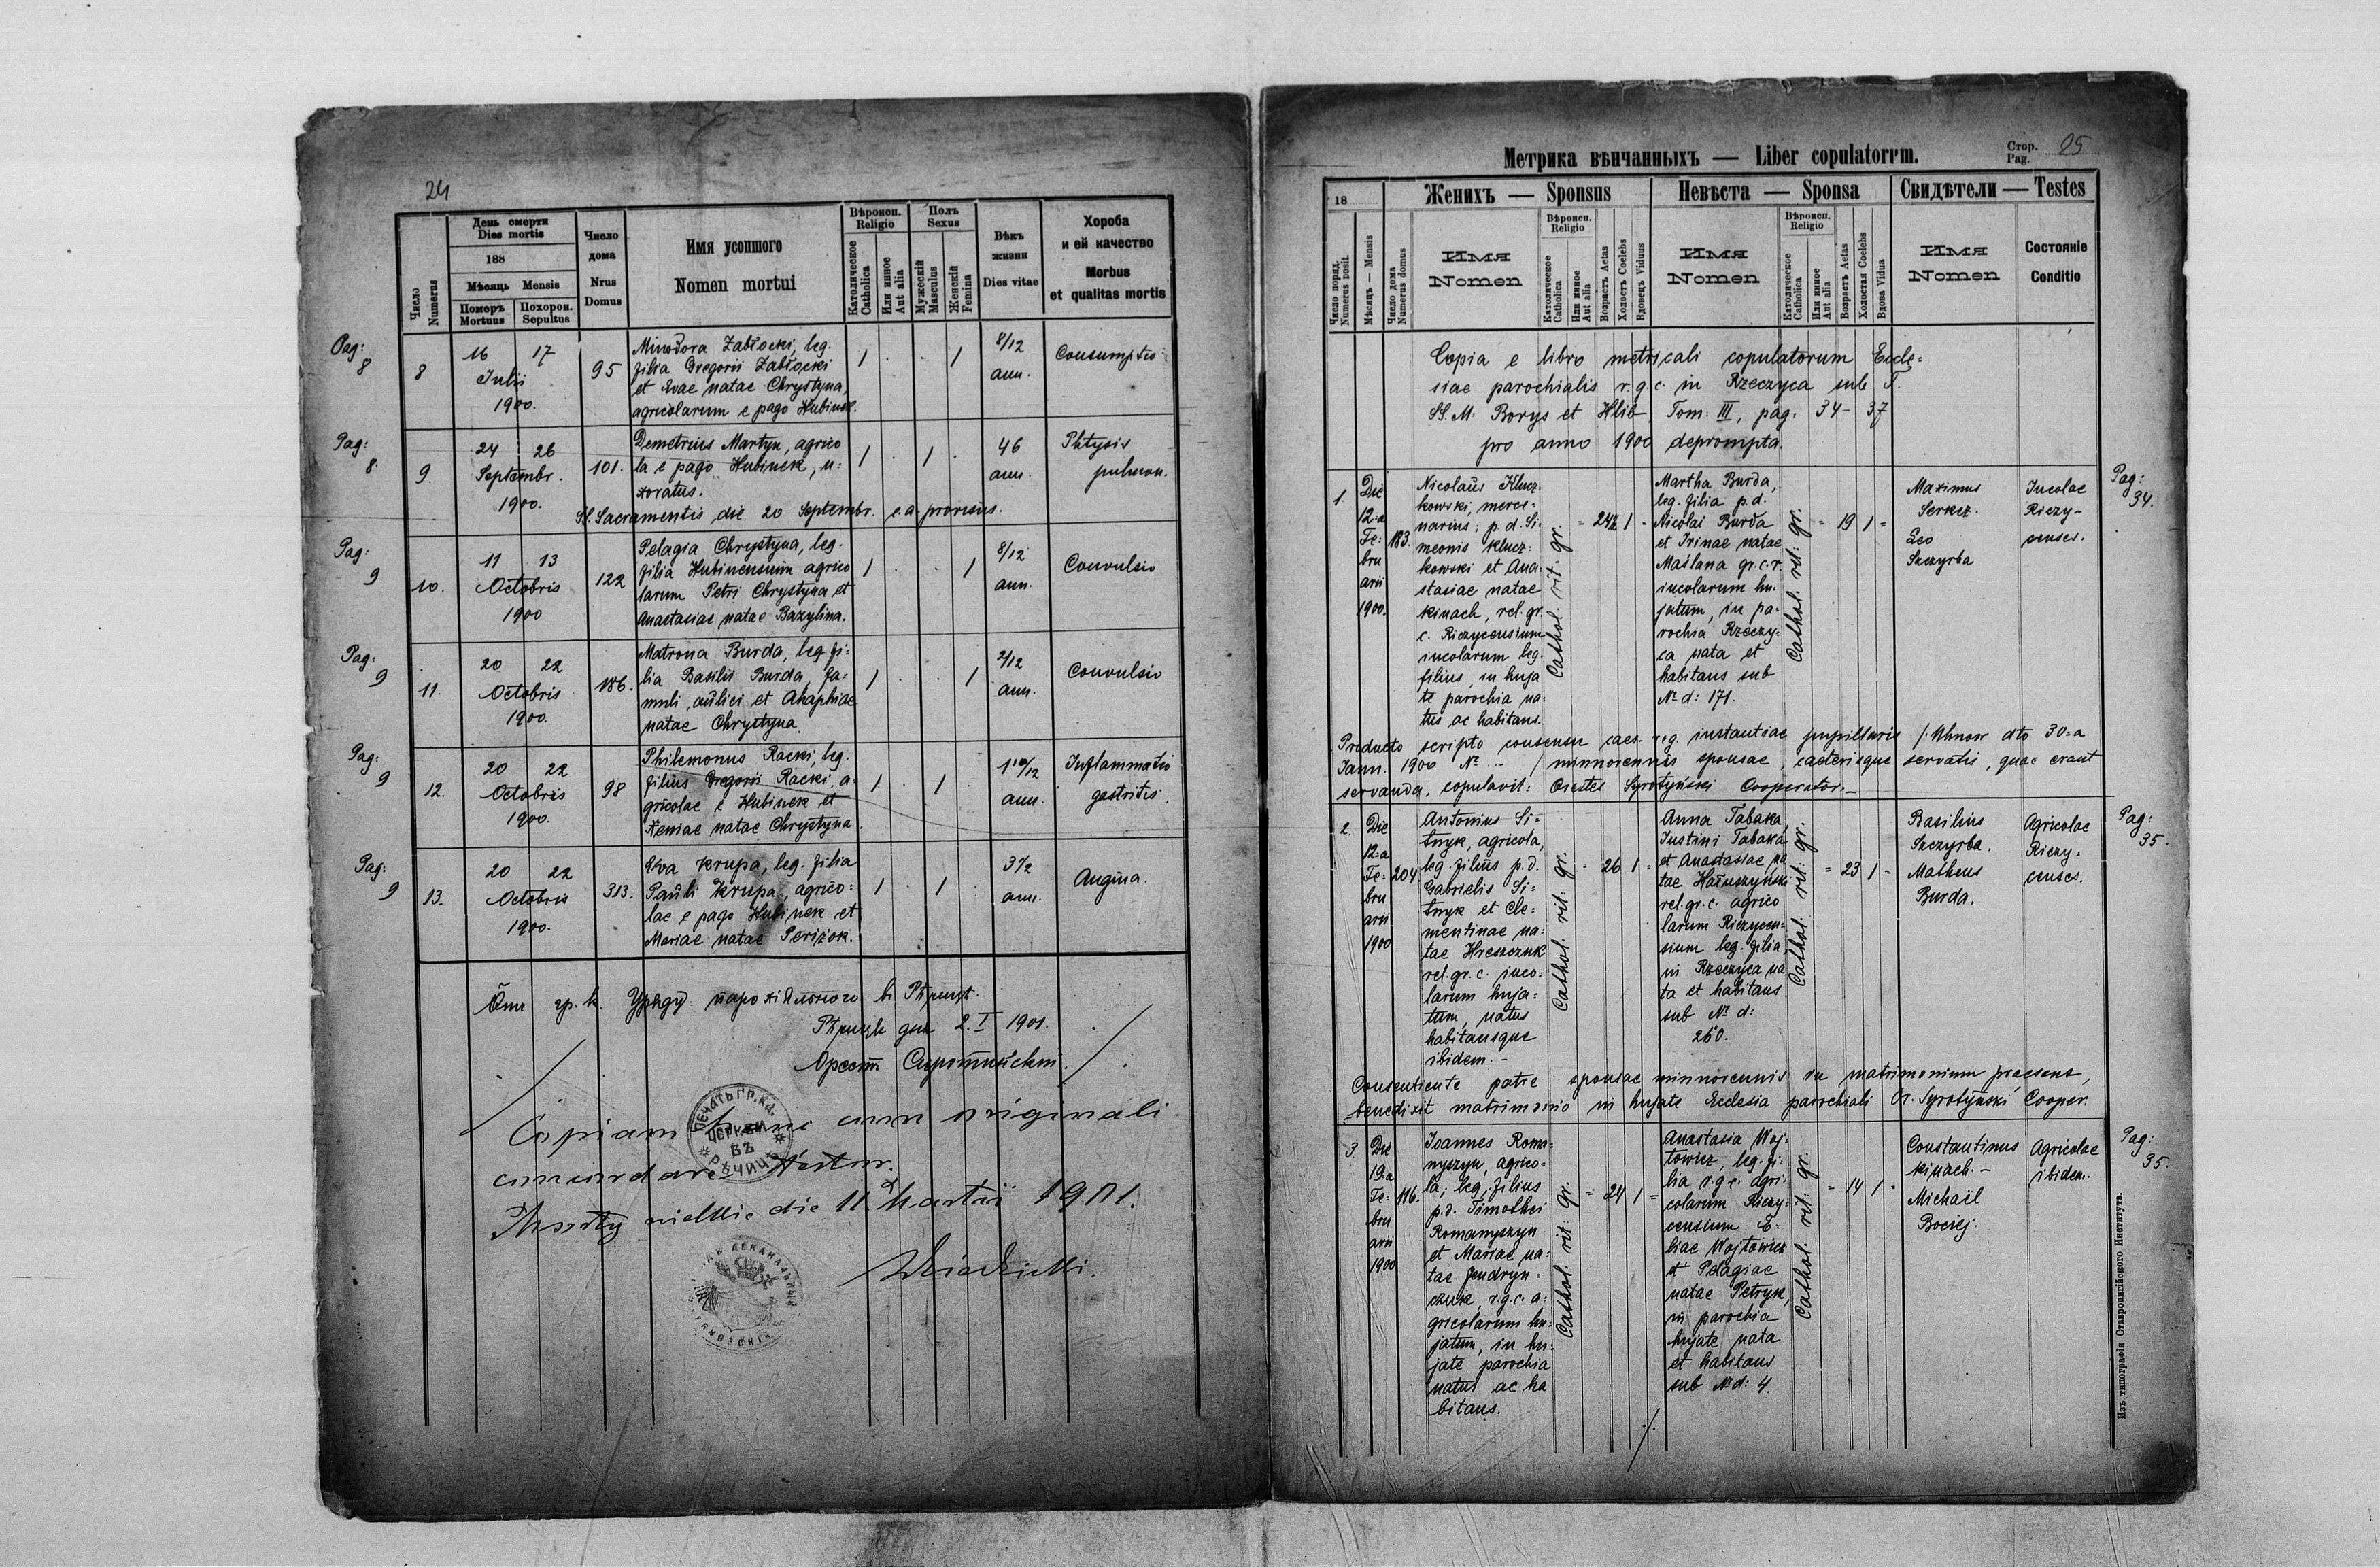 24
Число
Numerus
День смерти
Dies mortis
188
Мѣсяць Mensis
Померъ
Mortuus
Похорон.
Sepultus
Число
дома
Nrus
Domus
Имя усопшого
Nomen mortui
Вѣроисп.
Religio
Католическое
Catholica
Или инное
Aut alia
Полъ
Sexus
Мужескій
Masculus
Женскій
Femina
Вѣкъ
жизни
Dies vitae
Хороба
и ей качество
Morbus
et qualitas mortis
Pag:
8
8
16 17
Julii
1900.
95
Minodora Zabłocki, leg.
filia Gregorii Zabłocki
et Evae natae Chrystyna,
agricolarum e pago Hubinek.
1 . . 1
8/12
ann.
Consumptio
Pag:
8.
9.
24 26
Septembr.
1900.
101.
Demetrius Martyn, agrico
la e pago Hubinek, u=
xoratus.
1 . 1 .
46
ann.
Phtysis
pulmon.
St. Sacramentis die 20 Septembr. c. a. provisus.
Pag:
9
10.
11 13
Octobris
1900
122
Pelagia Chrystyna, leg.
filia Hubinensium agrico
larum Petri Chrystyna et
Anastasiae natae Bazylina.
1 . . 1
8/12
ann.
Convulsio
Pag:
9
11.
20 22
Octobris
1900.
186.
Matrona Burda, leg. fi=
lia Basilii Burda, fa=
muli aulici et Ahaphiae
natae Chrystyna.
1 . . 1
2/12
ann.
Convulsio
Pag:
9
12.
20 22
Octobris
1900.
98
Philemonus Racki, leg.
filius Gregorii Racki, a=
gricolae e Hubinek et
Xeniae natae Chrystyna.
1 . 1
1 10/12
ann.
Inflammatio
gastritis.
Pag:
9
13.
20 22
Octobris
1900.
313.
Eva Krupa, leg. filia
Pauli Krupa, agrico=
lae e pago Hubinek et
Mariae natae Perizok.
1 . 1 .
3 1/2
ann.
Angina.
Отъ гр. к. Уряду парохіяльного в Рѣчицѣ.
Рѣчицѣ дня 2. I 1901.
Орест Сиротинскій.
ПЕЧАТЬ ГР. КА.
ЦЕРКВИ
ВЪ
РѢЧИЦѢ
Copiam hanc cum originali
concordare testor.
die 11 Martii 1901.
Метрика вѣнчанныхъ — Liber copulatorum.
Стор.
Pag. 25
18
Женихъ — Sponsus
Невѣста — Sponsa
Свидѣтели — Testes
Число поряд.
Numerus posit.
Мѣсяцъ — Mensis
Число дома
Numerus domus
Имя
Nomen
Вѣроисп.
Religio
Католическое
Catholica
Или инное
Aut alia
Возрастъ Aetas
Холостъ Coelebs
Вдовецъ Viduus
Имя
Nomen
Вѣроисп.
Religio
Католическое
Catholica
Или инное
Aut alia
Возрастъ Aetas
Холостая Coelebs
Вдова Vidua
Имя
Nomen
Состояніе
Conditio
Copia e libro metricali copulatorum Eccle=
siae parochialis r. g. c. in Rzeczyca sub T.
SS. M. Borys et Hlib, Tom: III, pag. 34 - 37
pro anno 1900 deprompta.
1.
Die
12-a
Fe=
bru
arii
1900.
183.
Nicolaus Klucz=
kowski, merce=
narius; p. d. Si=
meonis Klucz=
kowski et Ana=
stasiae natae
Kinach, rel. gr.
c. Riczycensium
incolarum leg.
filius, in huja
te parochia na=
tus ac habitans.
Cathol. rit. gr.
24 1
Martha Burda,
leg. filia p. d.
Nicolai Burda
et Irinae natae
Maślana gr. c. r.
incolarum hu=
jatum, in pa=
rochia Rzeczy=
ca nata et
habitans sub
№ d: 171.
Cathol. rit: gr.
19 1
Maximus
Serkiz.
Leo
Szczyrba
Incolae
Riczy-
censes.
Pag:
34.
Producto scripto consensu caes. reg. instantiae pupillaris /: Uhnow dto 30-a
Jann. 1900 № .. / minnorennis sponsae, caeterisque servatis, quae erant
servanda, copulavit: Orestes Syrotyński Cooperator.-
2.
Die
12-a
Fe=
bru
arii
1900
204
Antonius Si=
tnyk, agricola,
leg. filius p. d.
Gabrielis Si=
tnyk et Cle=
mentinae na=
tae Hreszczuk
rel. gr. c. inco=
larum huja=
tum, natus
habitansque
ibidem. -
Cathol. rit: gr.
26 1
Anna Tabaka,
Justini Tabaka
et Anastasiae na
tae Hałuszyński
rel. gr. c. agrico
larum Riczycen=
sium leg. filia
in Rzeczyca na
ta et habitans
sub № d:
260.
Cathol. rit: gr.
23 1
Basilius
Szczyrba.
Matheus
Burda.
Agricolae
Riczy=
censes.
Pag:
35.
Consentiente patre sponsae minnorennis in matrimonium praesens,
benedixit matrimonio in hujate Ecclesia parochiali Or. Syrotyński Cooper.
3.
Die
19-a
Fe=
bru
arii
1900
116.
Joannes Roma=
nyszyn, agrico=
la, leg. filius
p. d. Timothei
Romanyszyn
et Mariae na=
tae Jendryn=
czuk, r. g. c. a=
gricolarum hu=
jatum, in hu=
jate parochia
natus ac ha
bitans.
Cathol. rit: gr.
24 1
Anastasia Woj=
towicz, leg. fi=
lia r. g. c. agri=
colarum Riczy=
censium E=
liae Wojtowicz
et Pelagiae
natae Petryk,
in parochia
hujate nata
et habitans
sub № d: 4.
Cathol. rit: gr.
14 1
Constantinus
Kinach. -
Michaël
Bociej.
Agricolae
ibidem.
Pag:
35.
Изъ типографіи Ставропигійского Института.